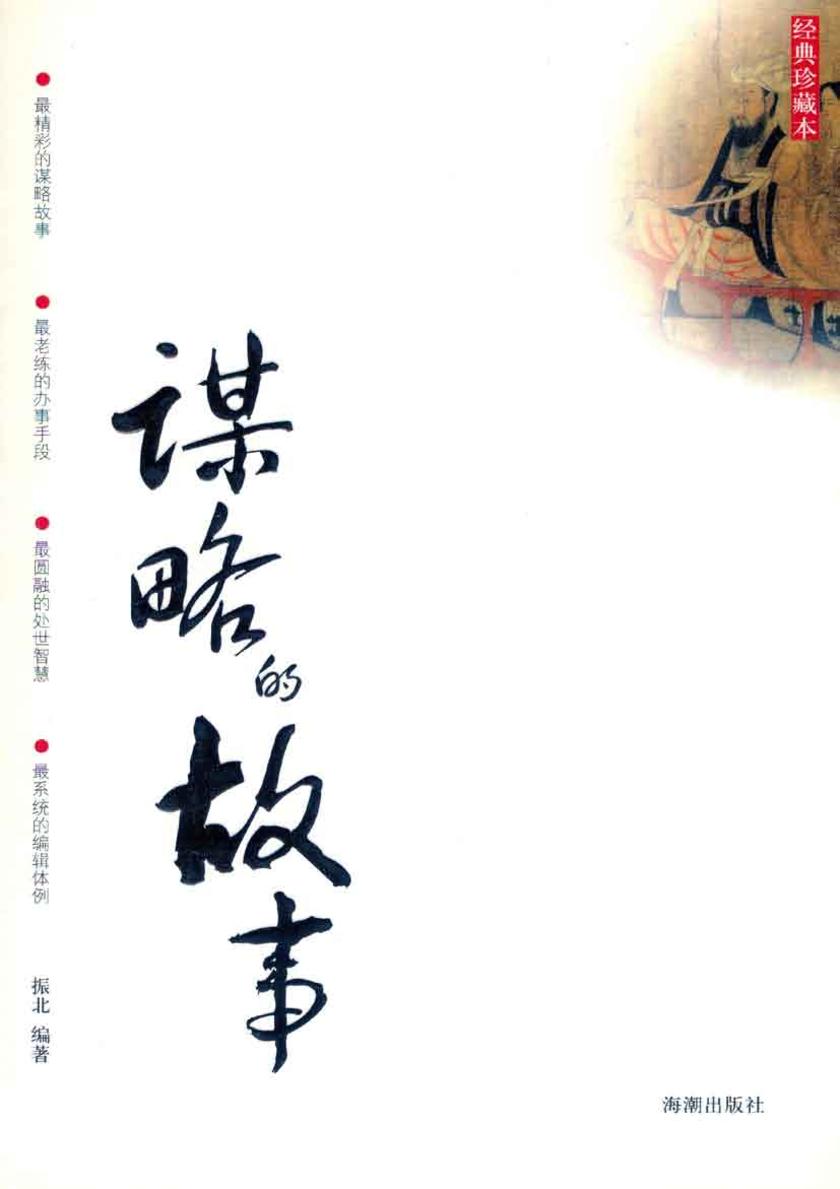 经典珍藏本
谋略的故事
●最精彩的谋略故事
●最老练的办事手段
●最圆融的处世智慧
●最系统的编辑体例
振北 编著
海潮出版社